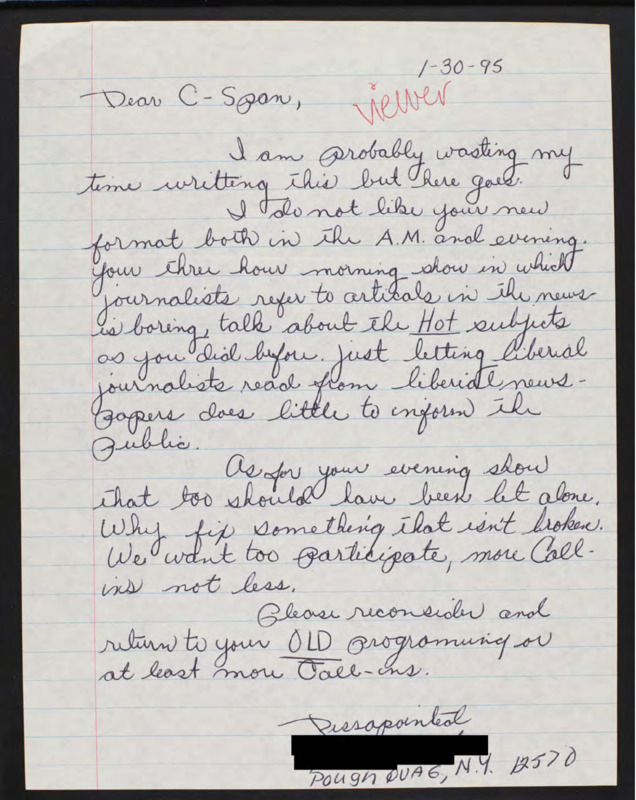 1-30-95
Dear C-Span,
viewer
I am probably wasting my
time writting this but here goes.
I do not like your new
format both in the A.M. and evening.
Your three hour morning show in which
journalists refer to articals in the news
is boring, talk about the Hot subjects
as you did before. just letting liberial
journalists read from liberial news-
papers does little to inform the
public.
As for your evening show
that too should have been let alone.
Why fix something that isn't broken.
We want too participate, more Call-
ins not less.
Please reconsider and
return to your OLD programing or
at least more Call-ins.
Dissapointed
Pough QUAG, N.Y. 12570